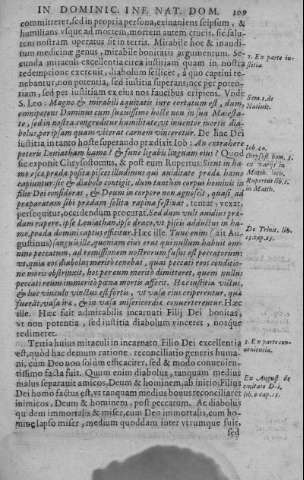 IN DOMINIC. INF. NAT. DOM. 109
committeret, sed in propria persona, exinaniens seipsum, &
humilians vsque ad mortem, mortem autem crucis, sic salu-
tem nostram operatus sit in tertia. Mirabile hoc & inaudi-
tum medicinę genus, mirabile bonitatis argumentum. Se-
cunda miraculi excellentia circa iustitiam quam in nostra
redemptione exercuit, diabolum scilicet, à quo captiui te-
nebantur, non potentia, sed iustitia superans, nec per poten-
tiam, sed per iustitiam ex eius nos faucibus eripiens. Vnde
S. Leo: Magno & mirabili æquitatis iure certatum est, dum
omnipotens Dominus cum sæuissimo hoste non in sua Maiesta-
te, sed in nostra congreditur humilitate,
bolus, per ipsam quam vicerat carnem vinceretur. De hac Dei
iustitia in tanto hoste superando prædixit Iob: An extrahere
poteris Leuiathan hamo? & fune ligabis linguam eius? Quod
sic exponit Chrysostomus, & post eum Rupertus: Sicut in ha-
mo esca præda posita pisces illi auiditate præda hamo
capiuntur, sic & diabolus contigit, dum tantum corpus hominis in
filio Dei consideret, & Deum in corpore non agnoscit, quasi ad
præparatam sibi prædam solita rapina festinat, tentat, vexat,
persequitur, occidendum procurat. Sed dum vult auidius præ-
dam rapere, ipse Leuiathan, ipse draco, vt piscis adductus in ha-
mo, præda domini captus efficitur. Hæc ille. Tunc enim (ait Au-
gustinus) sanguis ille, quoniam eius erat qui nullum habuit om-
nino peccatum, ad remissionem nostrorum fusus est peccatorum:
vt, quia eos diabolus merito tenebat, quos peccati reos conditio-
ne mortis obstrinxit, hos per eum merito dimitteret, quem nullius
peccati reum immerito pœna mortis affecit. Hac iustitia victus,
& hoc vinculo vinctus est fortis, vt vasa eius eriperentur, quæ
fuerant vasa iræ, & in vasa misericordiæ conuerterentur. Hæc
ille. Hæc fuit admirabilis incarnati Filij Dei bonitas,
vt non potentia, sed iustitia diabolum vinceret, nosque
redimeret.
Tertia huius miraculi in incarnato Filio Dei excellentia
est, quòd hac demum ratione, reconciliatio generis huma-
ni, cum Deo non solùm efficaciter, sed & modo conuenien-
tissimo facta fuit. Quum enim diabolus, tanquam medius
malus separauit amicos, Deum & hominem, ab initio, Filius
Dei homo factus est, vt tanquam medius bonus reconciliaret
inimicos, Deum & hominem, post peccatum. Ac diabolus
qu dem immortalis & miser, cum Deo immortali, cum ho-
mine lapso miser, medium quoddam inter vtrumque fuit,
sed
2. En parte iu-
stitia.
Iob 40.
Chrysost. hom. 2.
Rupertus lib. 1.
in Matth.
De Trinit. lib.
13. cap. 15.
3. En parte con-
uenientia.
Ex August. de
ciuitate Dei,
lib. 9. cap. 15.